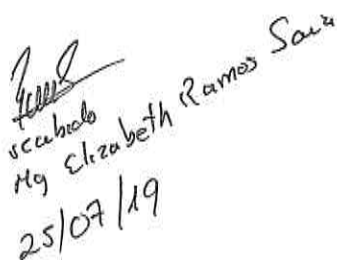 recibido
Mg Elizabeth Ramos
25/07/19